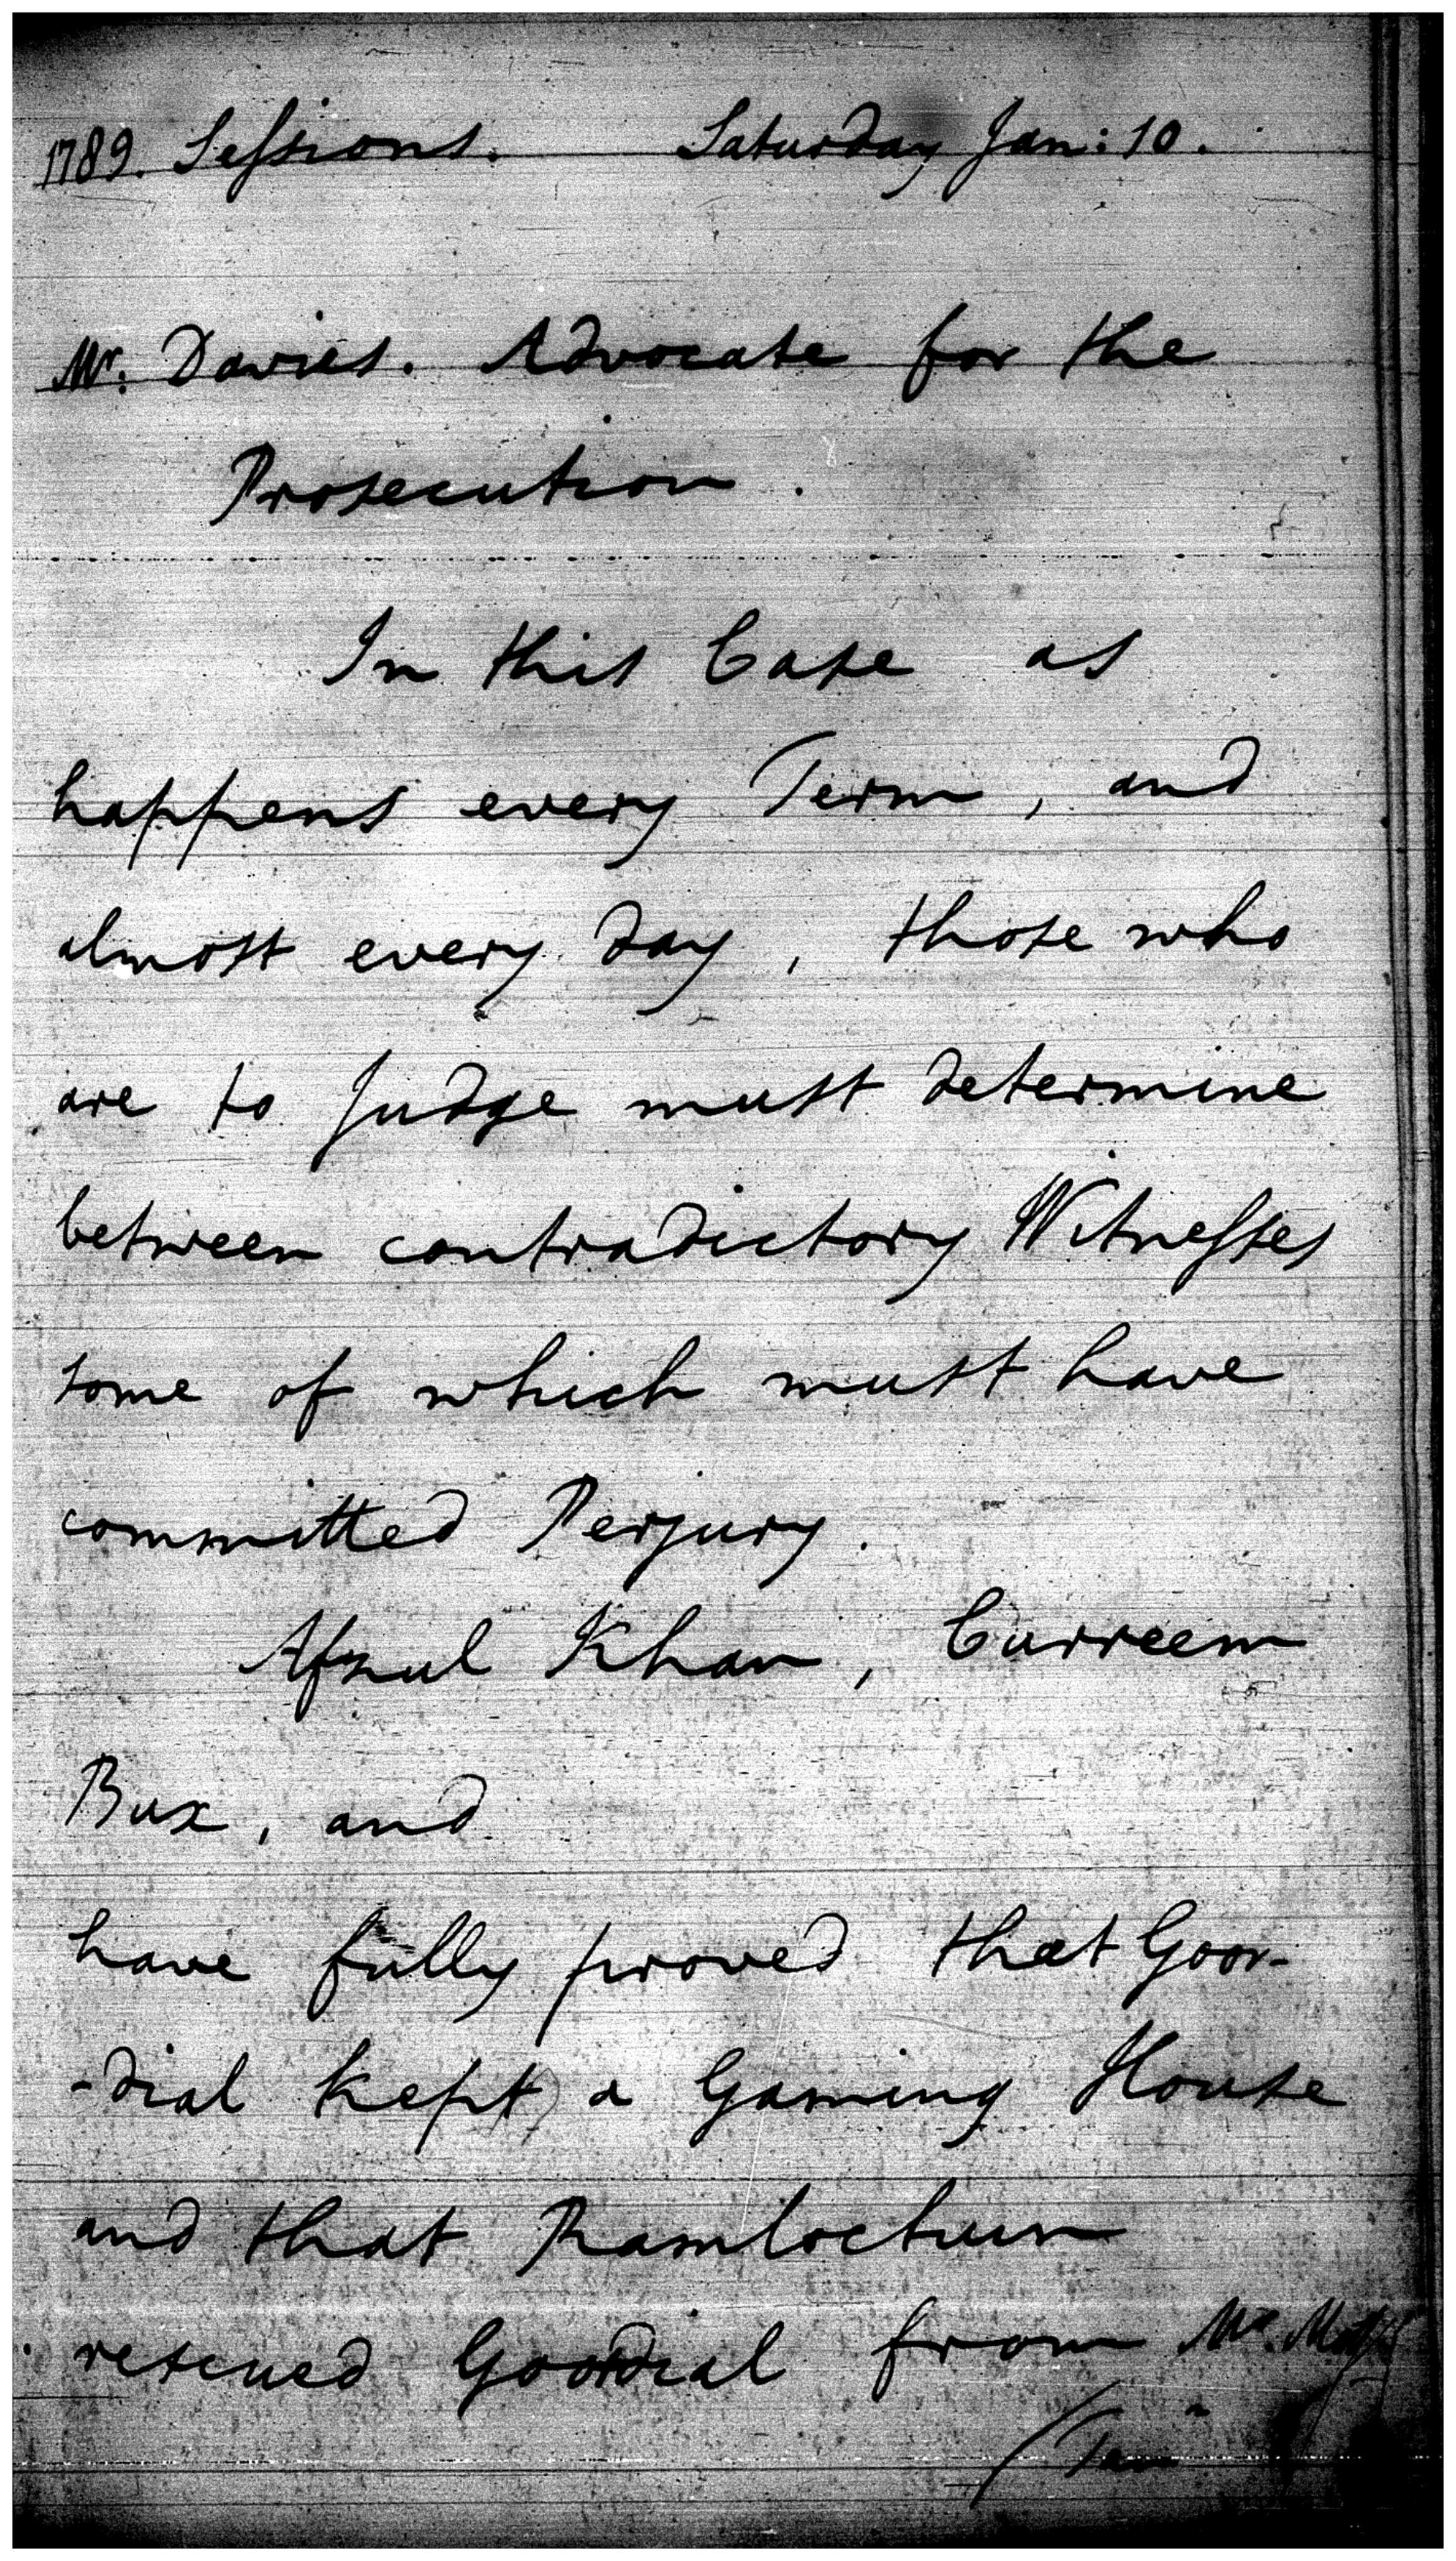 1789. Sessions. Saturday Jan: 10.
Mr. Davies. Advocate for the
Prosecution.
In this Case as
happens every Term, and
almost every day, those who
are to Judge must determine
between contradictory Witnesses
some of which must have
committed Perjury.
Afzul Khan, Curreem
Bux, and
have fully proved that Goor-
-dial kept a Gaming House
and that Ramlochun
rescued Goordial from Mr.